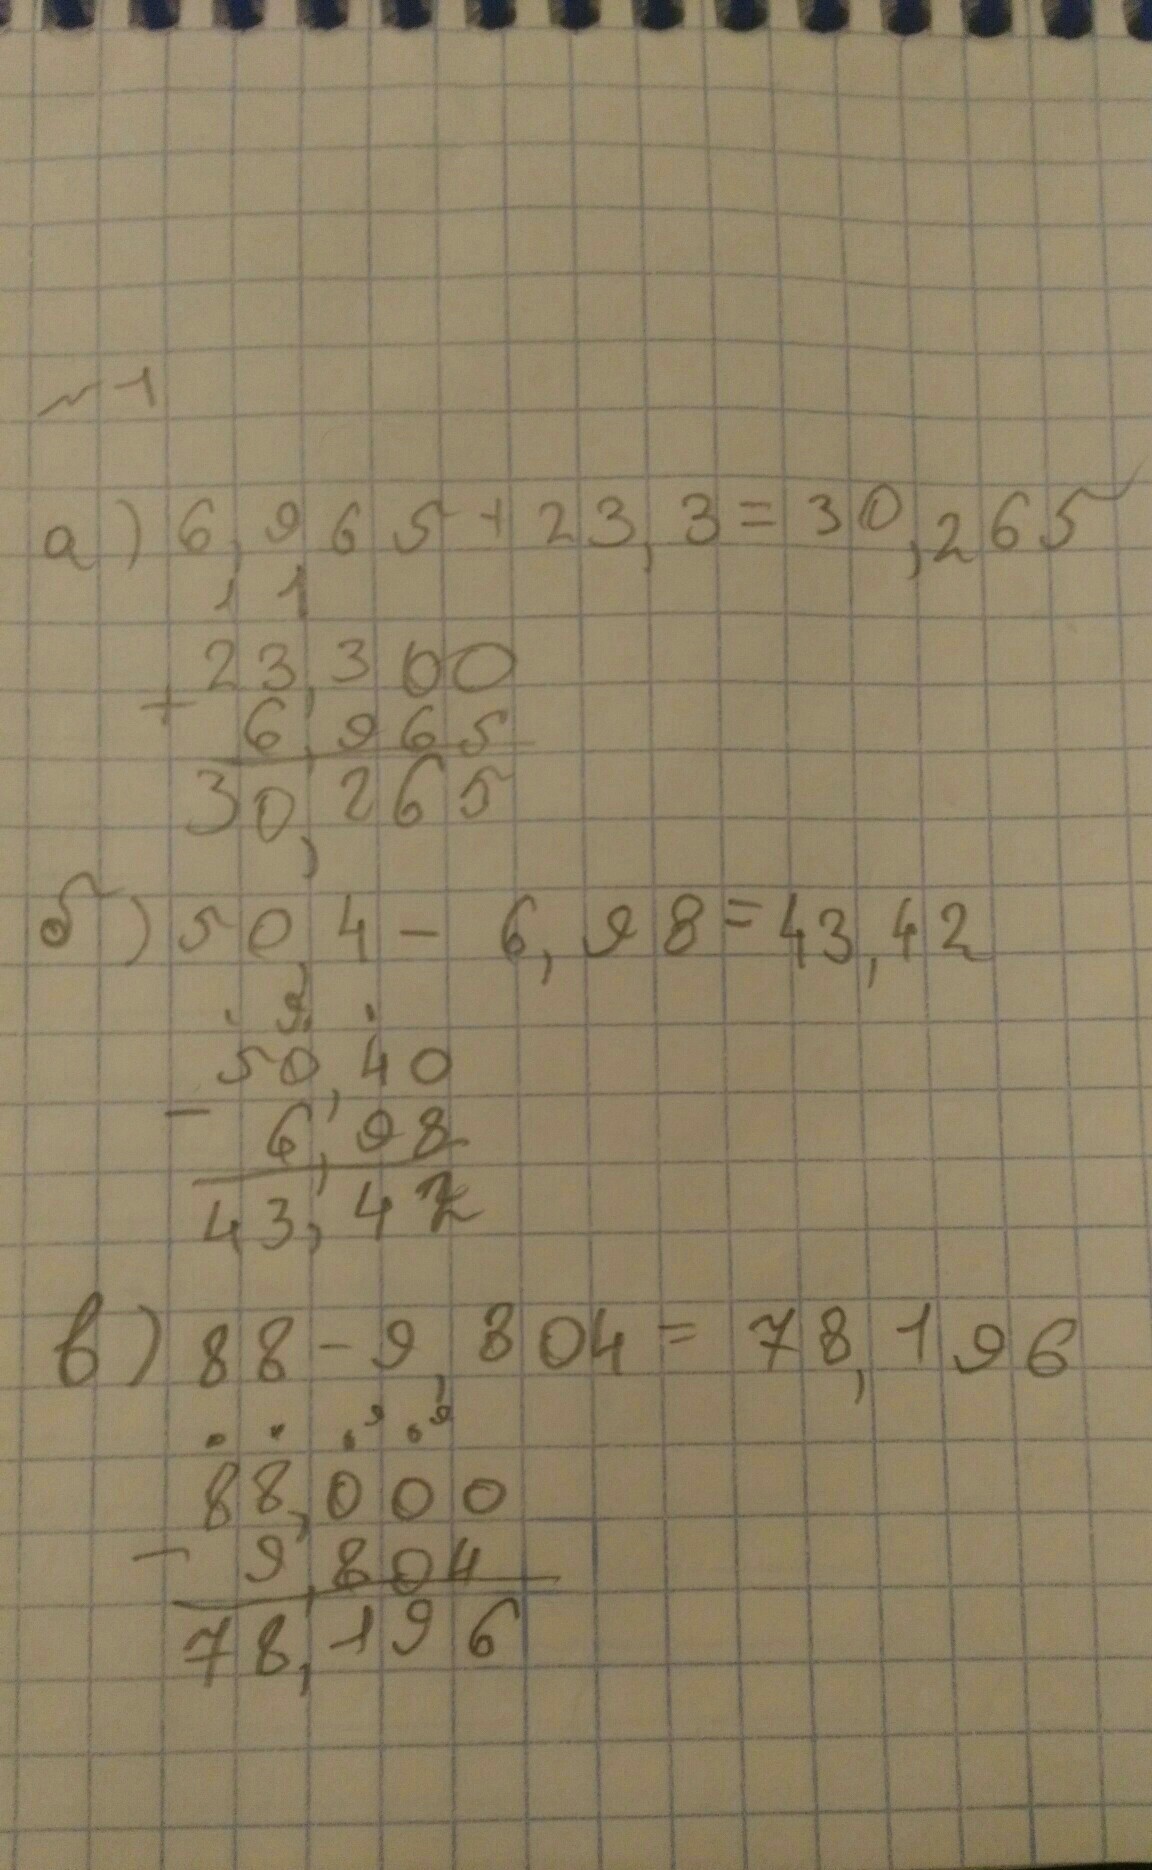 №1
а) 6,965+23,3=30,265
1 1
23,300
+
6,965
30,265
б) 50,4 - 6,98=43,42
. 9. .
50,40
-
6,98
43,42
в) 88-9,804=78,196
. . .9 .9
88,000
-
9,804
78,196